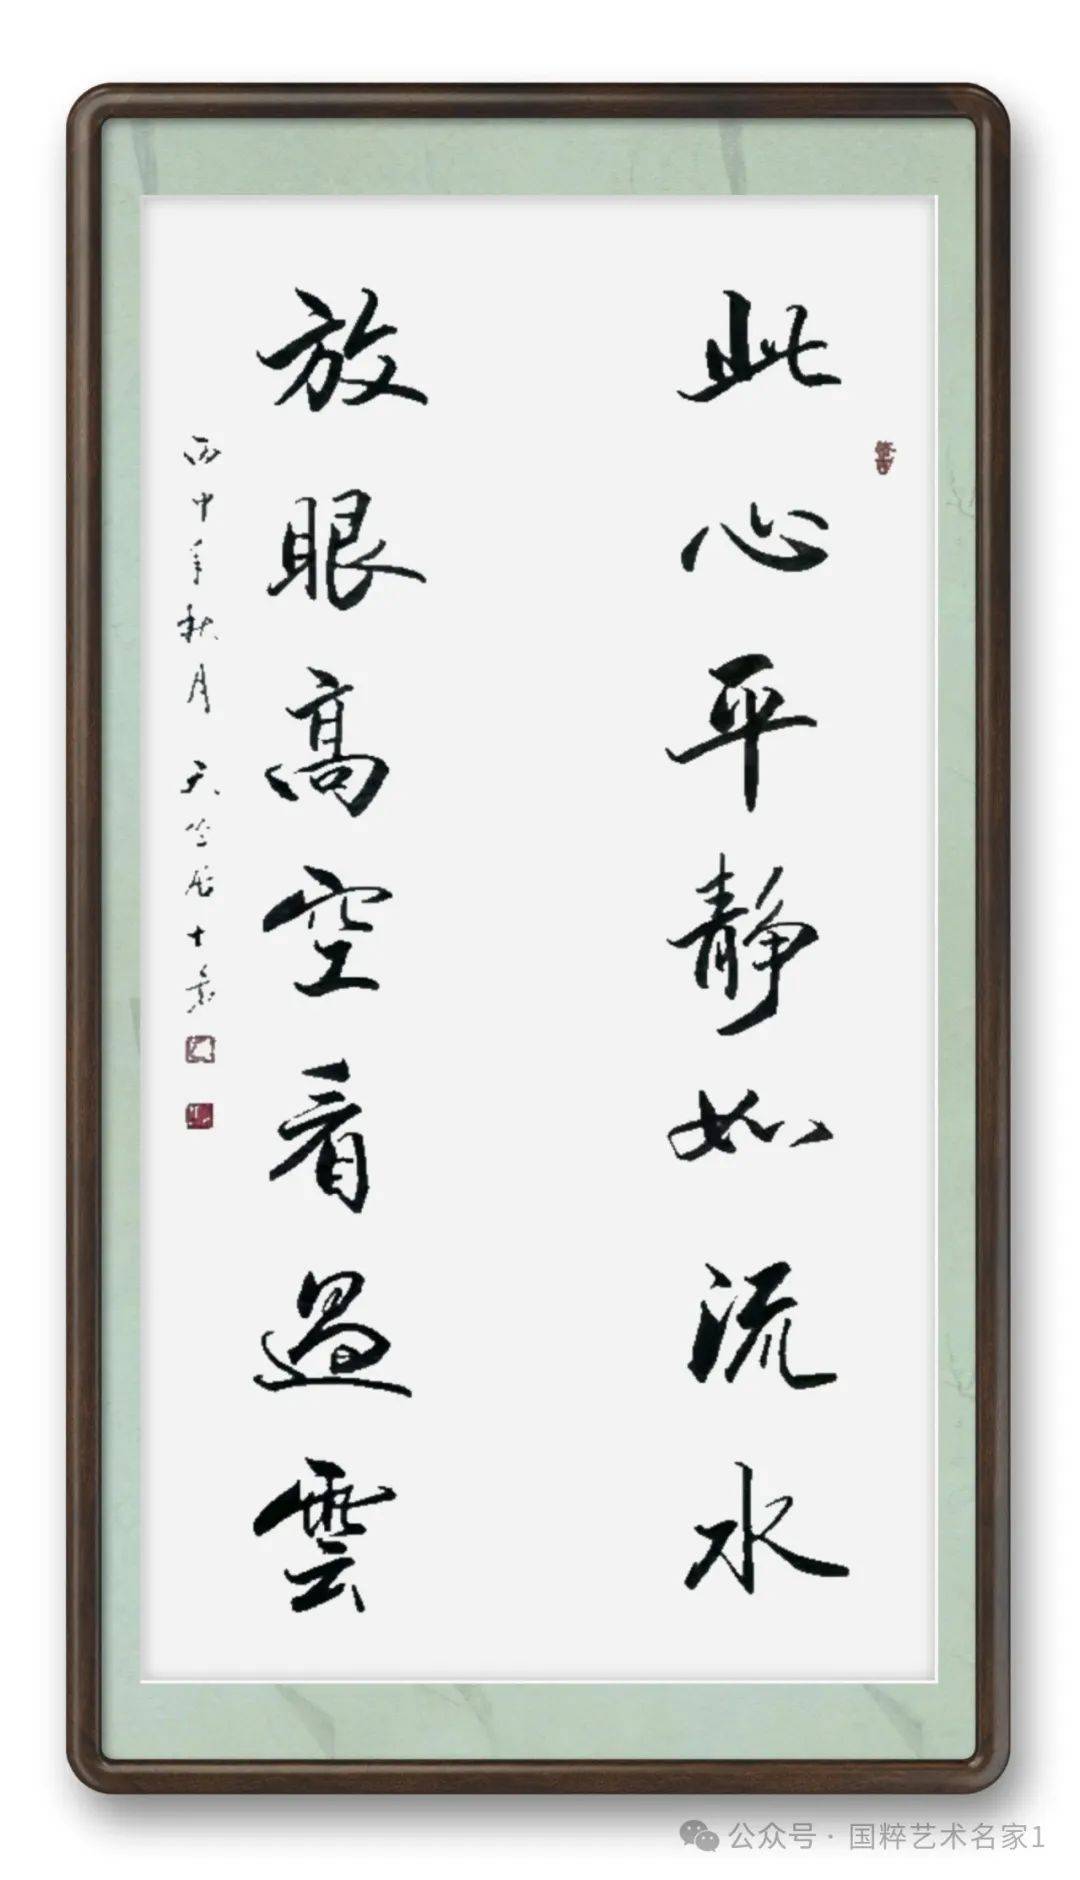 此心平靜如流水
放眼高空看過雲
丙申年秋月 天
居士
公众号 · 国粹艺术名家1